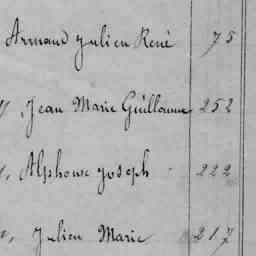 Armand Julien René 75
, Jean Marie Guillaume 252
, Alphonse Joseph 222
, Julien Marie 217